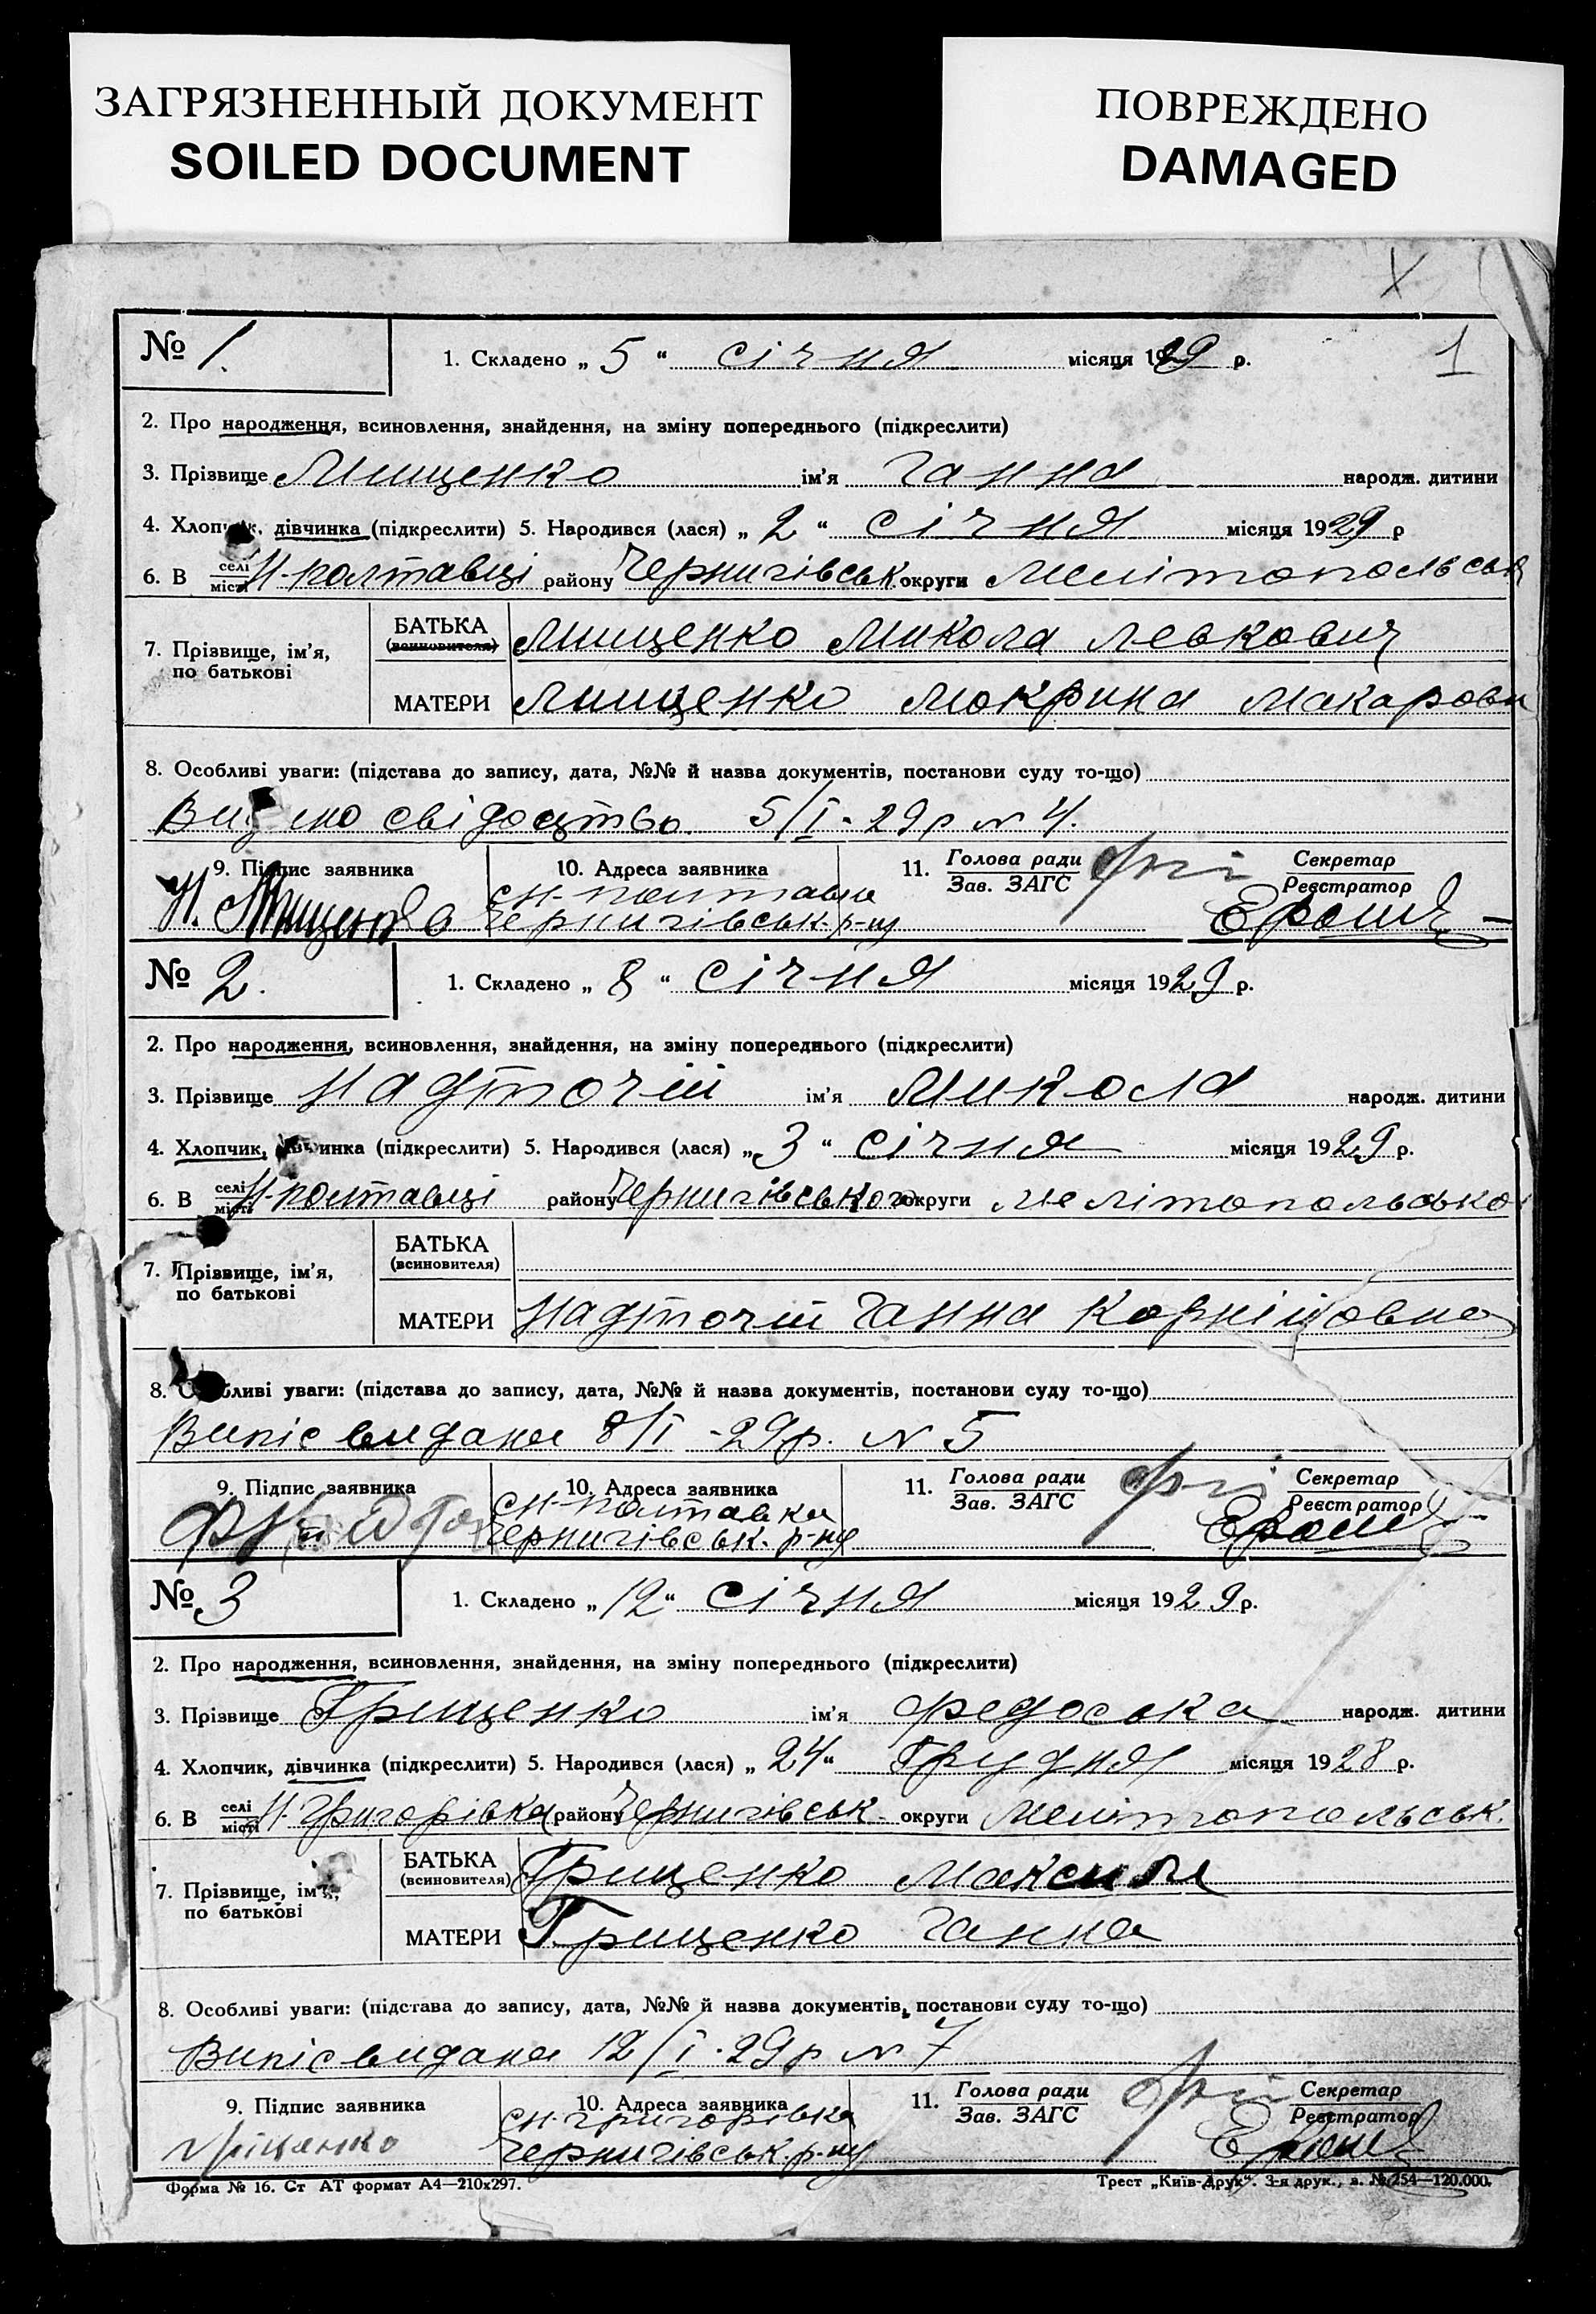 ЗАГРЯЗНЕННЫЙ ДОКУМЕНТ
SOILED DOCUMENT
ПОВРЕЖДЕНО
DAMAGED
1
№ 1. 1. Складено „ 5 “ січня місяця 1929 р.
2. Про народження, всиновлення, знайдення, на зміну попереднього (підкреслити)
3. Прізвище Мищенко ім’я Ганна народж. дитини
4. Хлопчик, дівчинка (підкреслити) 5. Народився (лася) „ 2 “ січня місяця 1929 р
6. В селі місті Н-Полтавці району Чернигівськ округи Мелітопольськ
7. Прізвище, ім’я, по батькові БАТЬКА (всиновителя) Мищенко Микола Левкович
МАТЕРИ Мищенко Мокрина Макаровн
8. Особливі уваги: (підстава до запису, дата, №№ й назва документів, постанови суду то-що)
свідоцтво 5/I-29р N 4.
9. Підпис заявника 10. Адреса заявника 11. Голова ради Зав. ЗАГС Секретар Реєстратор
Н. Мищенко с Н-Полтавка
Чернигівськ. р-ну
№ 2. 1. Складено „ 8 “ січня місяця 1929 р.
2. Про народження, всиновлення, знайдення, на зміну попереднього (підкреслити)
3. Прізвище Надточій ім’я Микола народж. дитини
4. Хлопчик, дівчинка (підкреслити) 5. Народився (лася) „ 3 “ січня місяця 1929 р.
6. В селі місті Н-Полтавці району Чернигівського округи Мелітопольської
7. Прізвище, ім’я, по батькові БАТЬКА (всиновителя)
МАТЕРИ Надточій Ганна Корніїовна
8. Особливі уваги: (підстава до запису, дата, №№ й назва документів, постанови суду то-що)
Випіс видана 8/I-29р. N 5
9. Підпис заявника 10. Адреса заявника 11. Голова ради Зав. ЗАГС Секретар Реєстратор
с Н-Полтавка
Чернигівськ. р-ну
№ 3 1. Складено „ 12 “ січня місяця 1929 р.
2. Про народження, всиновлення, знайдення, на зміну попереднього (підкреслити)
3. Прізвище Грищенко ім’я Федоська народж. дитини
4. Хлопчик, дівчинка (підкреслити) 5. Народився (лася) „ 24 “ Грудня місяця 1928 р.
6. В селі місті Н-Григорівка району Чернигівськ округи Мелітопольськ.
7. Прізвище, ім’я, по батькові БАТЬКА (всиновителя) Грищенко Максим
МАТЕРИ Грищенко Ганна
8. Особливі уваги: (підстава до запису, дата, №№ й назва документів, постанови суду то-що)
Випіс видана 12/I-29р N 7
9. Підпис заявника 10. Адреса заявника 11. Голова ради Зав. ЗАГС Секретар Реєстратор
с Н-Григорівка
Чернигівськ. р-ну
Форма № 16. Ст АТ формат А4—210х297. Трест „Київ-Друк“. 3-я друк., з. № 254—120.000.